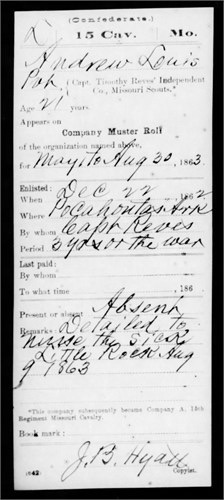 (Confederate.)
15 Cav. Mo.
Andrew Louis
(Capt. Timothy Reves' Independent
Co., Missouri Scouts.*
Age 21 years.
Appears on
Company Muster Roll
of the organization named above,
for May 1 to Aug 30, 1863
Enlisted:
When Dec 22, 1862
Where Pocahontas Ark
By whom Capt Reves
Period 3 yrs or the war
Last paid:
By whom
To what time , 186
Present or absent Absent
Remarks: Detailed to
nurse the sick
Little Rock Aug
9 1863
*This company subsequently became Company A, 15th
Regiment Missouri Cavalry.
Book mark:
J. B. Hyatt
(642) Copyist.